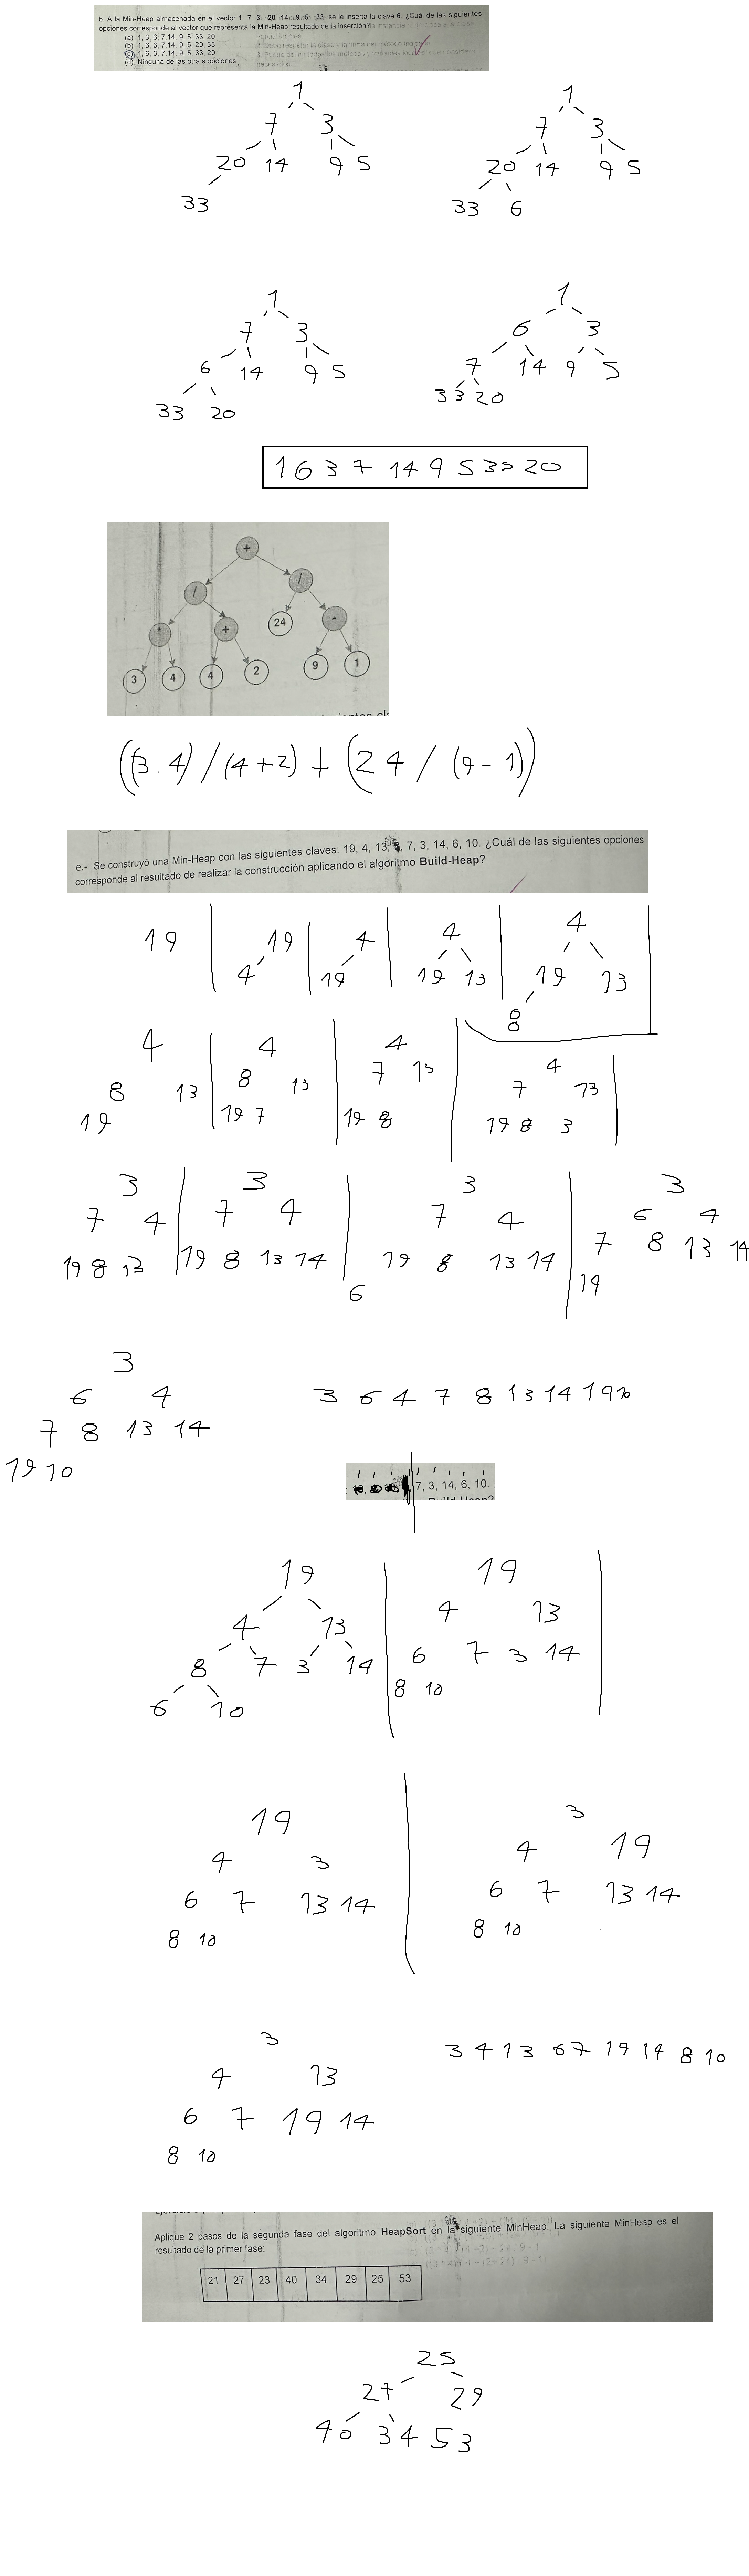 b. A la Min-Heap almacenada en el vector 1 7 3 20 14 9 5 33 se le inserta la clave 6. ¿Cuál de las siguientes
opciones corresponde al vector que representa la Min-Heap resultado de la inserción?
(a) 1, 3, 6, 7,14, 9, 5, 33, 20
(b) 1, 6, 3, 7,14, 9, 5, 20, 33
(c) 1, 6, 3, 7,14, 9, 5, 33, 20
(d) Ninguna de las otra s opciones
1 1
7 3 7 3
20 14 9 5 20 14 9 5
33 33 6
1 1
7 3 6 3
6 14 9 5 7 14 9 5
33 20 33 20
1 6 3 7 14 9 5 33 20
+
/ /
* + 24 -
3 4 4 2 9 1
((3.4)/(4+2)+(24/(9-1))
e.- Se construyó una Min-Heap con las siguientes claves: 19, 4, 13, 8, 7, 3, 14, 6, 10. ¿Cuál de las siguientes opciones
corresponde al resultado de realizar la construcción aplicando el algoritmo Build-Heap?
19 19 4 4 4
4 19 19 13 19 13
8
4 4 4 4
8 13 8 13 7 13 7 13
19 19 7 19 8 19 8 3
3 3 3 3
7 4 7 4 7 4 6 4
19 8 13 19 8 13 14 19 8 13 14 7 8 13 14
6 19
3
6 4 3 6 4 7 8 13 14 19 10
7 8 13 14
19 10
7, 3, 14, 6, 10.
19 19
4 13 4 13
8 7 3 14 6 7 3 14
6 10 8 10
19 3
4 3 4 19
6 7 13 14 6 7 13 14
8 10 8 10
3 3 4 13 6 7 19 14 8 10
4 13
6 7 19 14
8 10
Aplique 2 pasos de la segunda fase del algoritmo HeapSort en la siguiente MinHeap. La siguiente MinHeap es el
resultado de la primer fase:
21 27 23 40 34 29 25 53
25
27 29
40 34 53